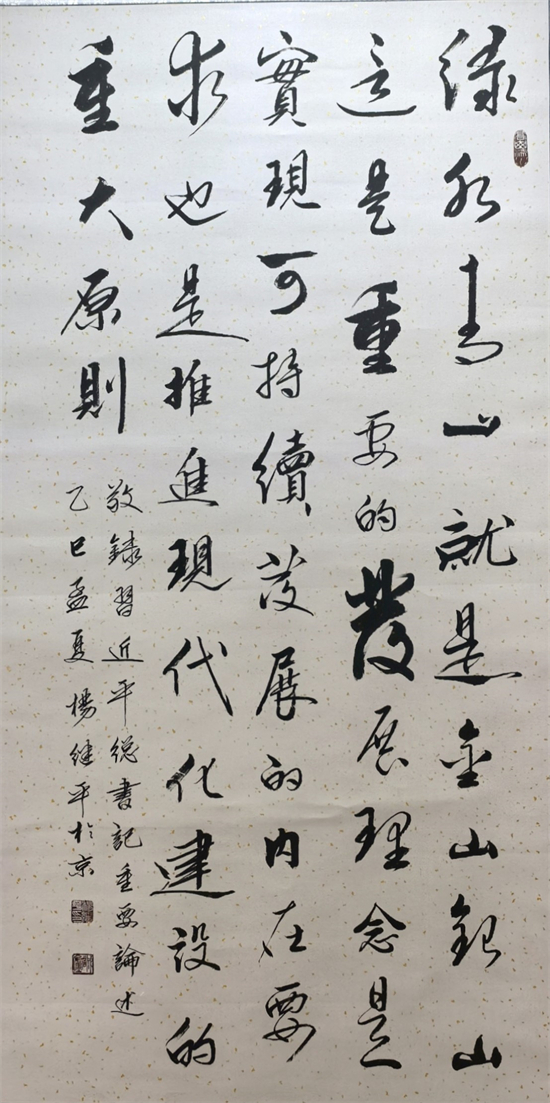 绿水青山就是金山銀山
这是重要的發展理念是
實現可持續發展的内在要
求也是推進現代化建設的
重大原則
敬録習近平總書記重要論述
乙巳孟夏楊继平於京